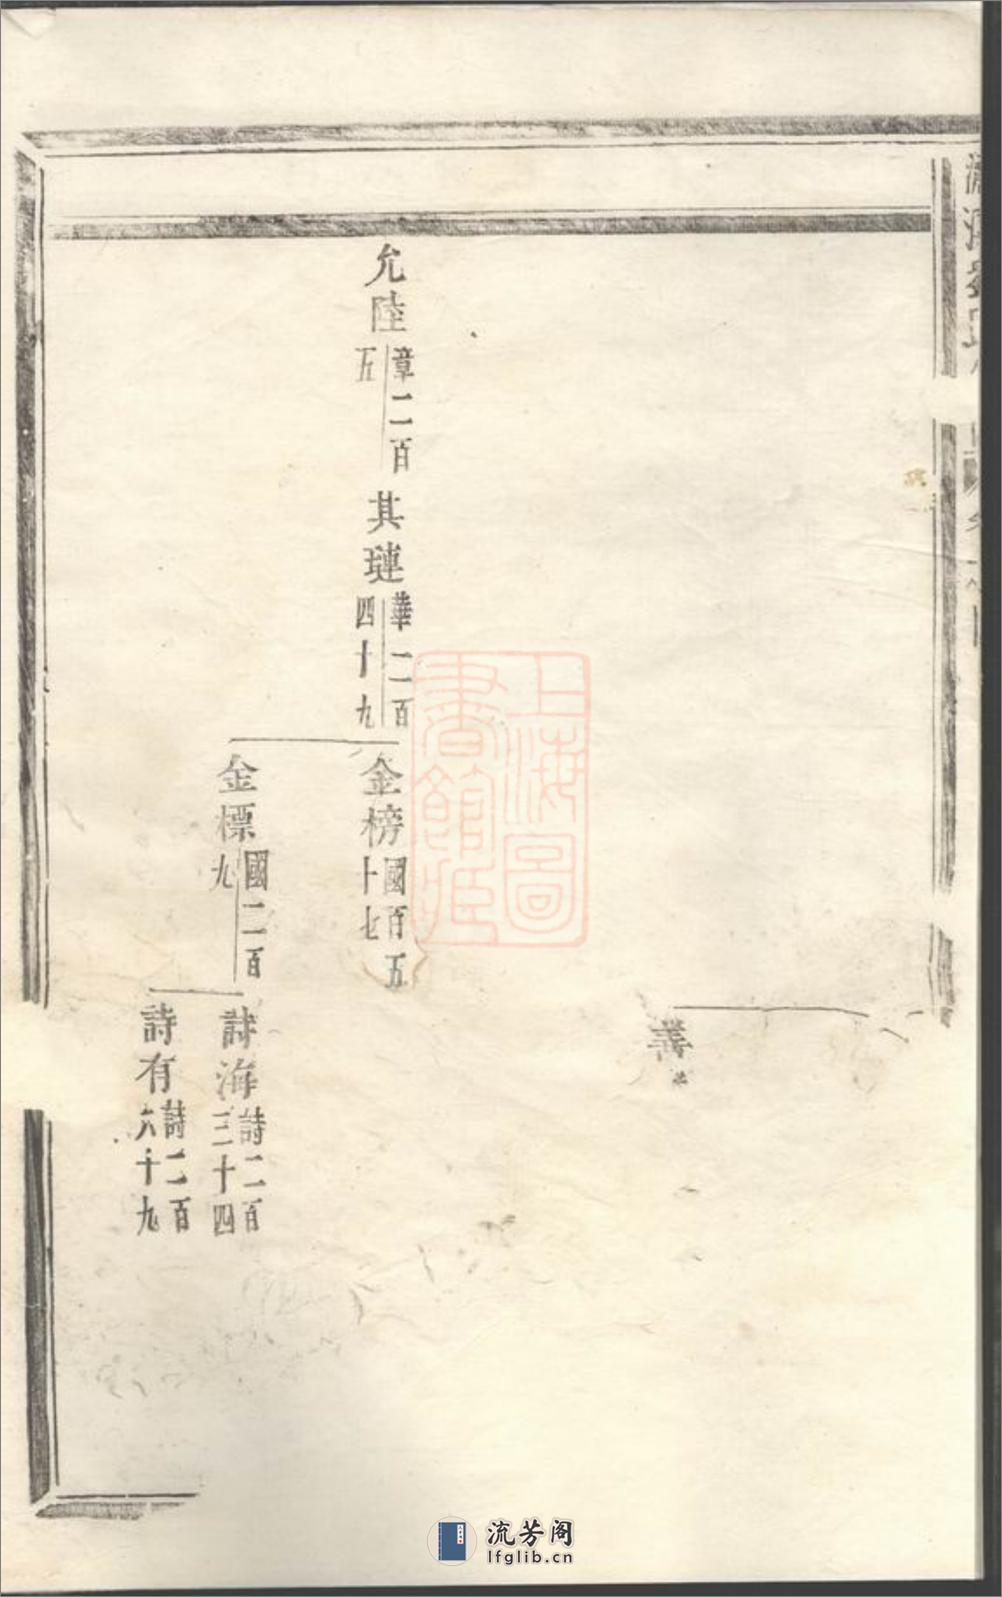 善
允陸
章二百
五
其璉
華二百
四十九
金榜
國百五
十七
金標
國二百
九
詩海
詩二百
三十四
詩有
詩二百
六十九
上海圖
書館藏
流芳阁
lfglib.cn